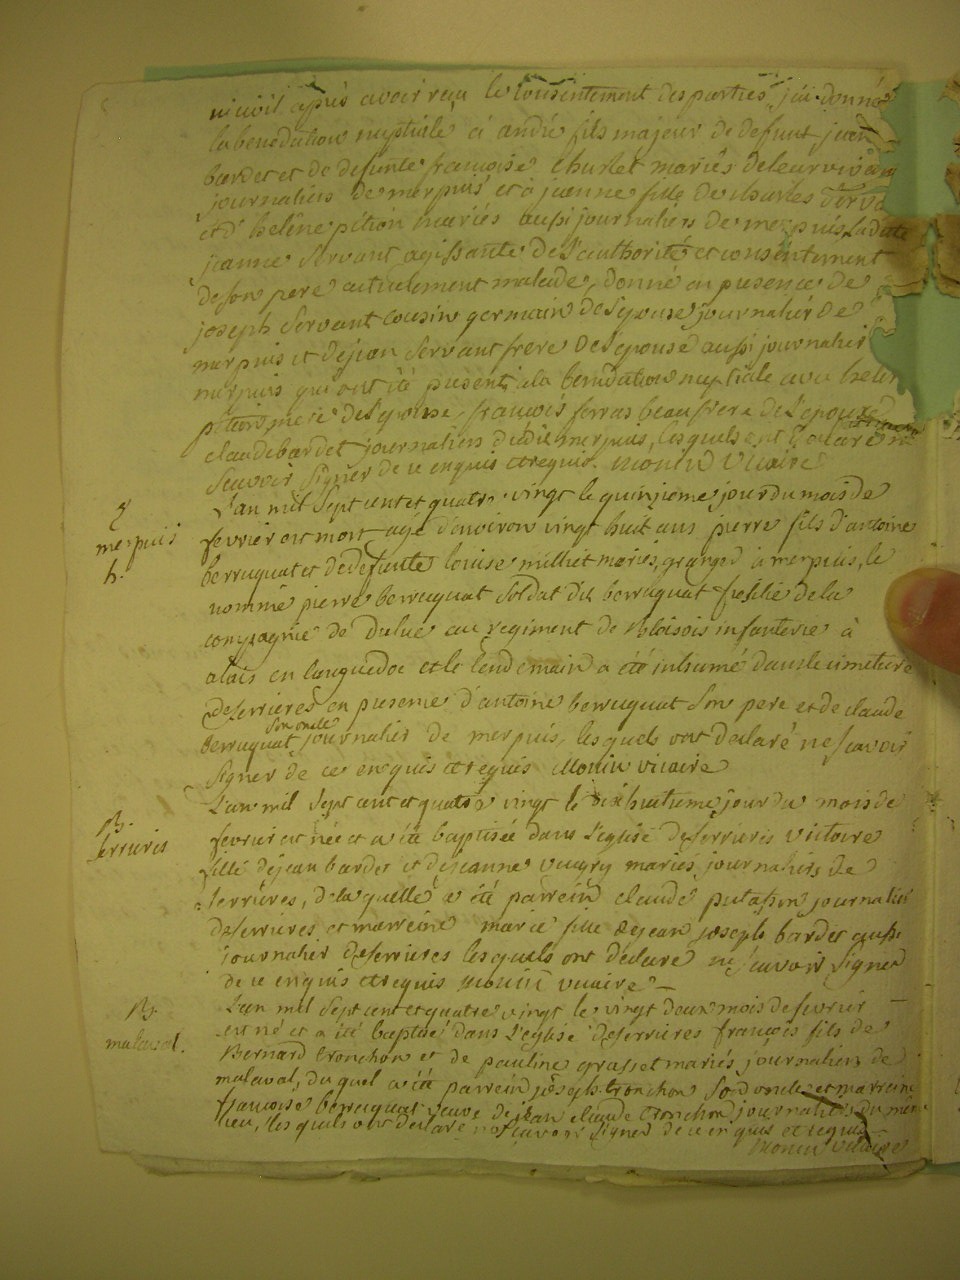 civil après avoir reçu le consentement des parties, j'ai donné
la benediction nuptiale a andré fils majeur de defunt jean
bardet et de defunte françoise Churlet mariés de leur vivant
journaliers de merpuis et a jeanne fille de charles Serva
et d'helène pition mariés aussi journaliers de merpuis, ladite
jeanne Servant agissante de l'authorité et consentement
de son pere actuelement malade, donné en presence de
joseph Servant cousin germain de l'epouse journalier de
merpuis et de jean Servant frere de l'epouse aussi journalier
merpuis qui ont été present a la benediction nuptiale avec helen
pition mere de l'epouse, françois ferras beaufrere de l'epouse
claude bardet journaliers dudit merpuis, lesquels ont declaré ne
Scavoir Signer de ce enquis et requis. Monin Vicaire
L'an mil Sept cent et quatre vingt le quinzieme jour du mois de
merpuis
fevrier est mort agé d'environ vingt huit ans pierre fils d'antoine
h.
berruquat et de defunte louise milliet mariés, granger a merpuis, le
nommé pierre berruquat Soldat dit berruquat fusilié de la
compagnie de Dulue au regiment de bloisois infanterie à
alais en languedoc et le lendemain a été inhumé dans le cimetiere
de serrieres en presence d'antoine berruquat Son pere et de claude
Son oncle
berruquat journalier de merpuis, lesquels ont declaré ne scavoir
Signer de ce enquis et requis Monin vicaire
L'an mil Sept cent et quatre vingt le dixhuitieme jour du mois de
B.
Serrieres
fevrier est née et a été baptisée dans l'eglise de Serrieres victoire
fille de jean bardet et de jeanne vugry mariés, journaliers de
Serrieres, de laquelle a été parrein claude putasson journalier
de serrieres et marreine marie fille de jean joseph bardet aussi
journalier de serrieres lesquels ont declaré ne scavoir Signer
de ce enquis et requis Monin vicaire
L'an mil Sept cent et quatre vingt le vingt deux mois de fevrier
B.
malaval.
est né et a été baptisé dans l'eglise de serrieres françois fils de
Bernard tronchon et de pauline grasset mariés journaliers de
malaval, du quel a été parrein joseph tronchon Son oncle et marreine
francoise berruquat veuve de jean claude tronchon journaliers du même
lieu, lesquels ont declaré ne scavoir Signer de ce enquis et requis
Monin vicaire